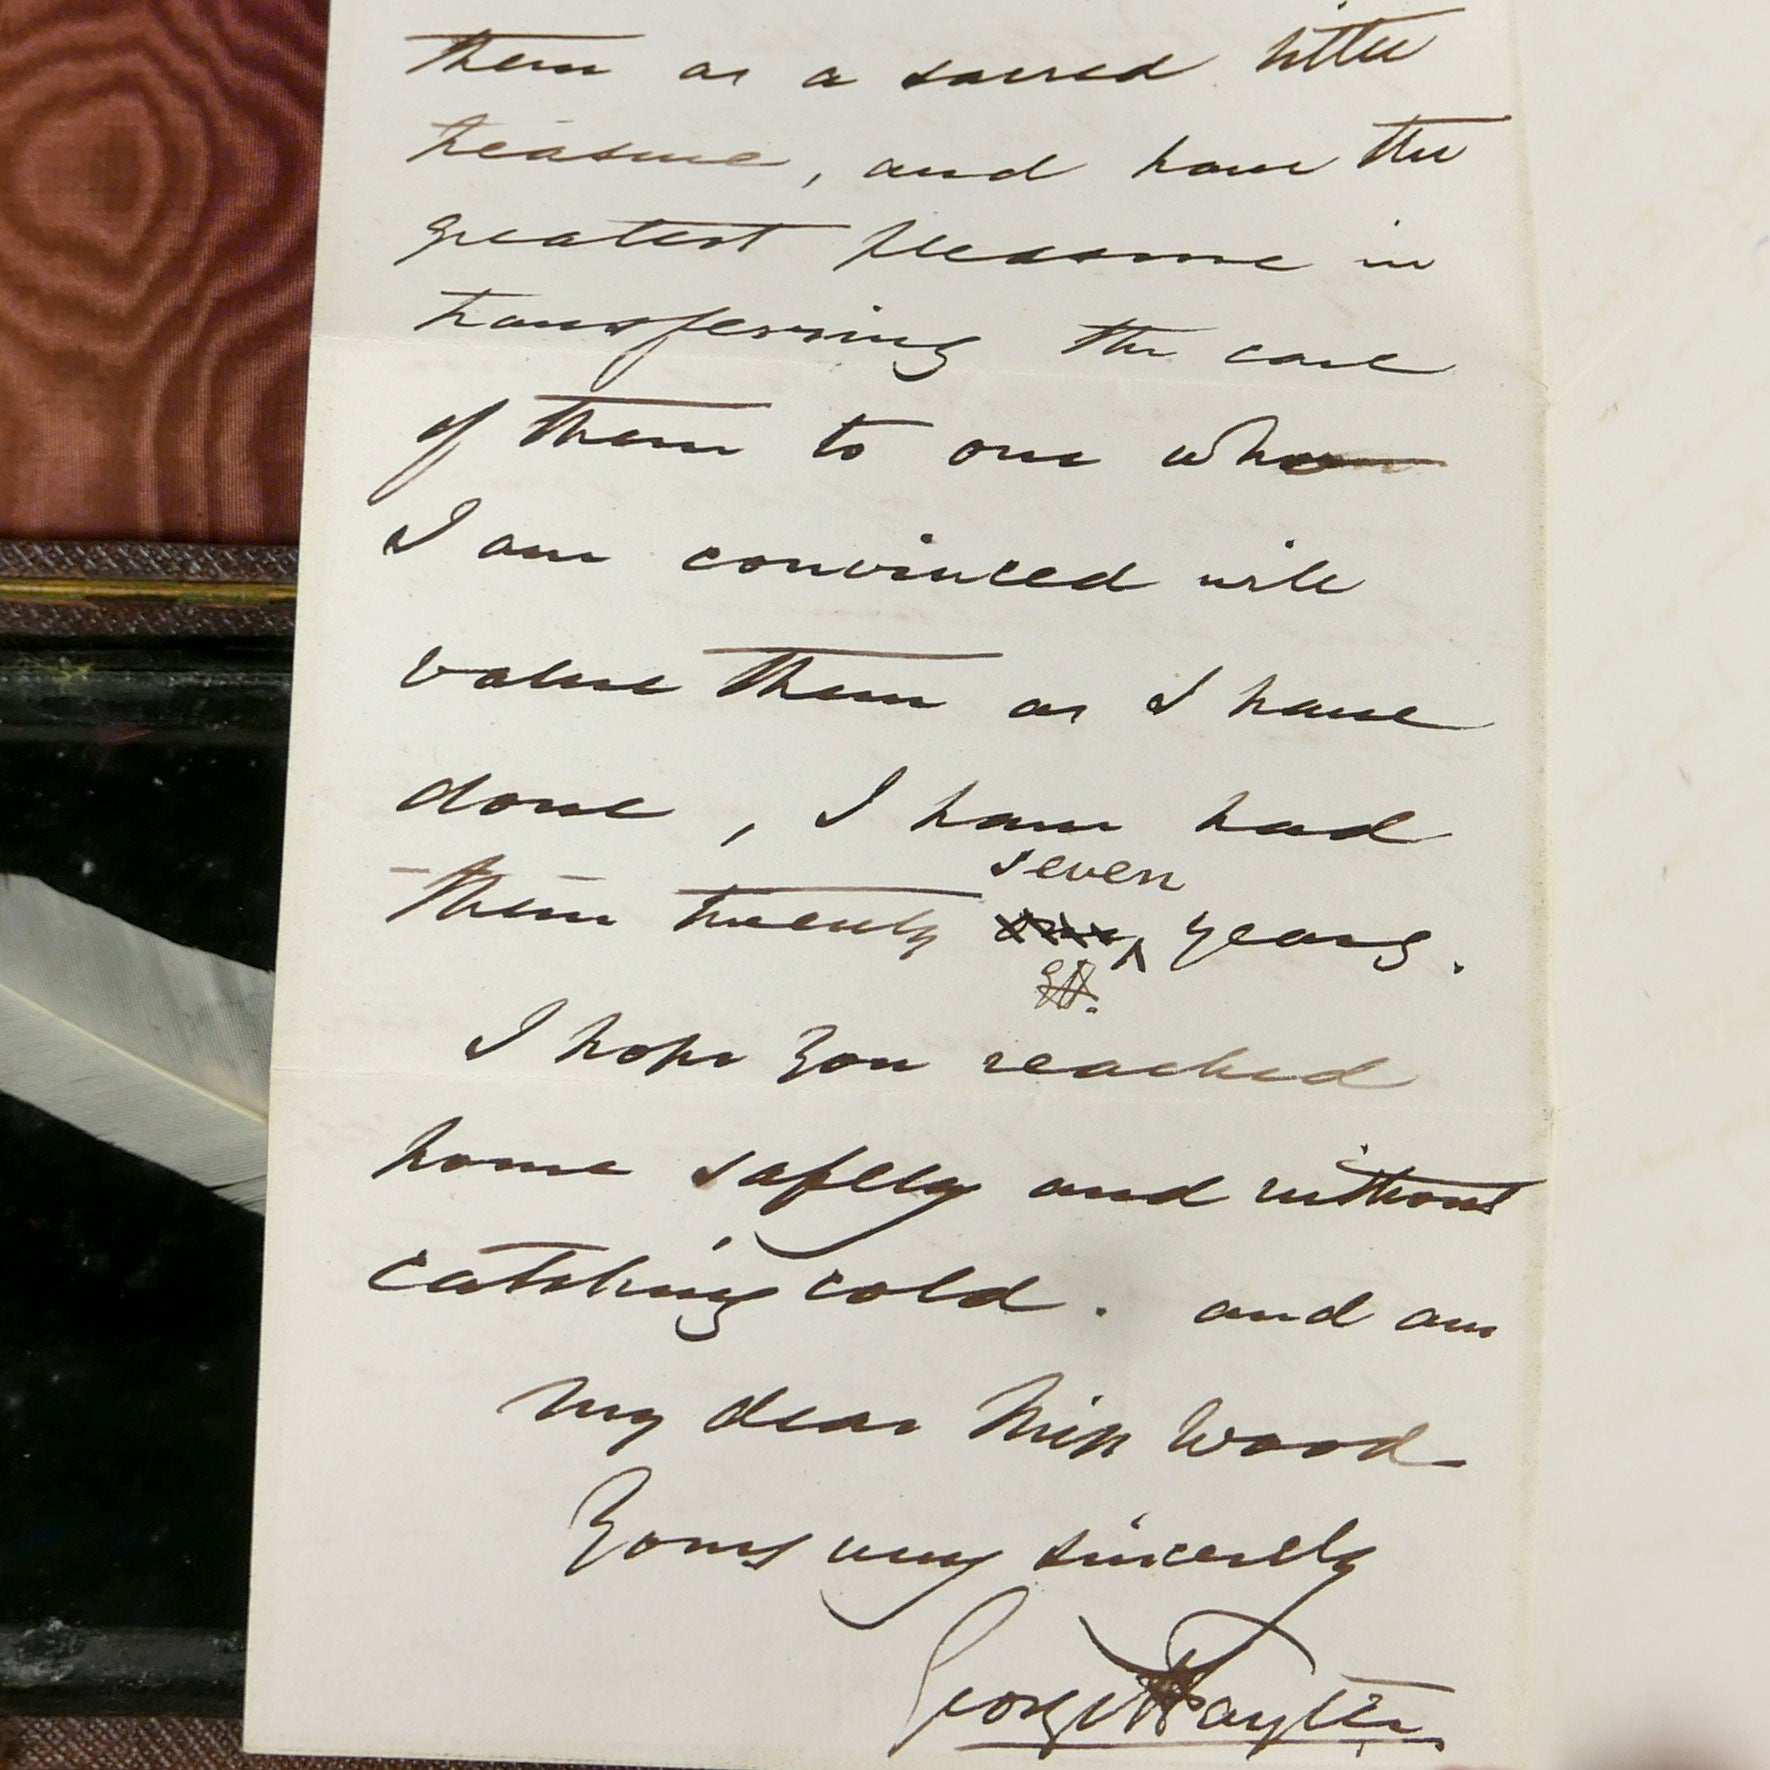 them as a sacred little
treasure, and have the
greatest pleasure in
transferring the care
of them to one who
I am convinced will
value them as I have
done, I have had
seven
them twenty years.
I hope you reached
home safely and without
catching cold. and am
my dear Miss Wood
Yours very sincerely
George Hayter